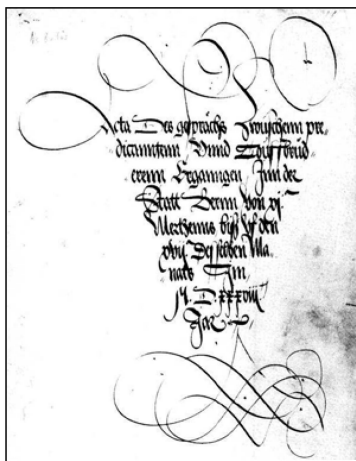 Acta Des gesprächs Zwüschenn pre-
dicannttenn Vnnd Touffbrüd-
erenn Erganngen Inn der
Statt Bernn Von xj.
Mertzenns biß vf den
xvij. Des selben Mo-
nats Im
M. D. xxxviij
Jar